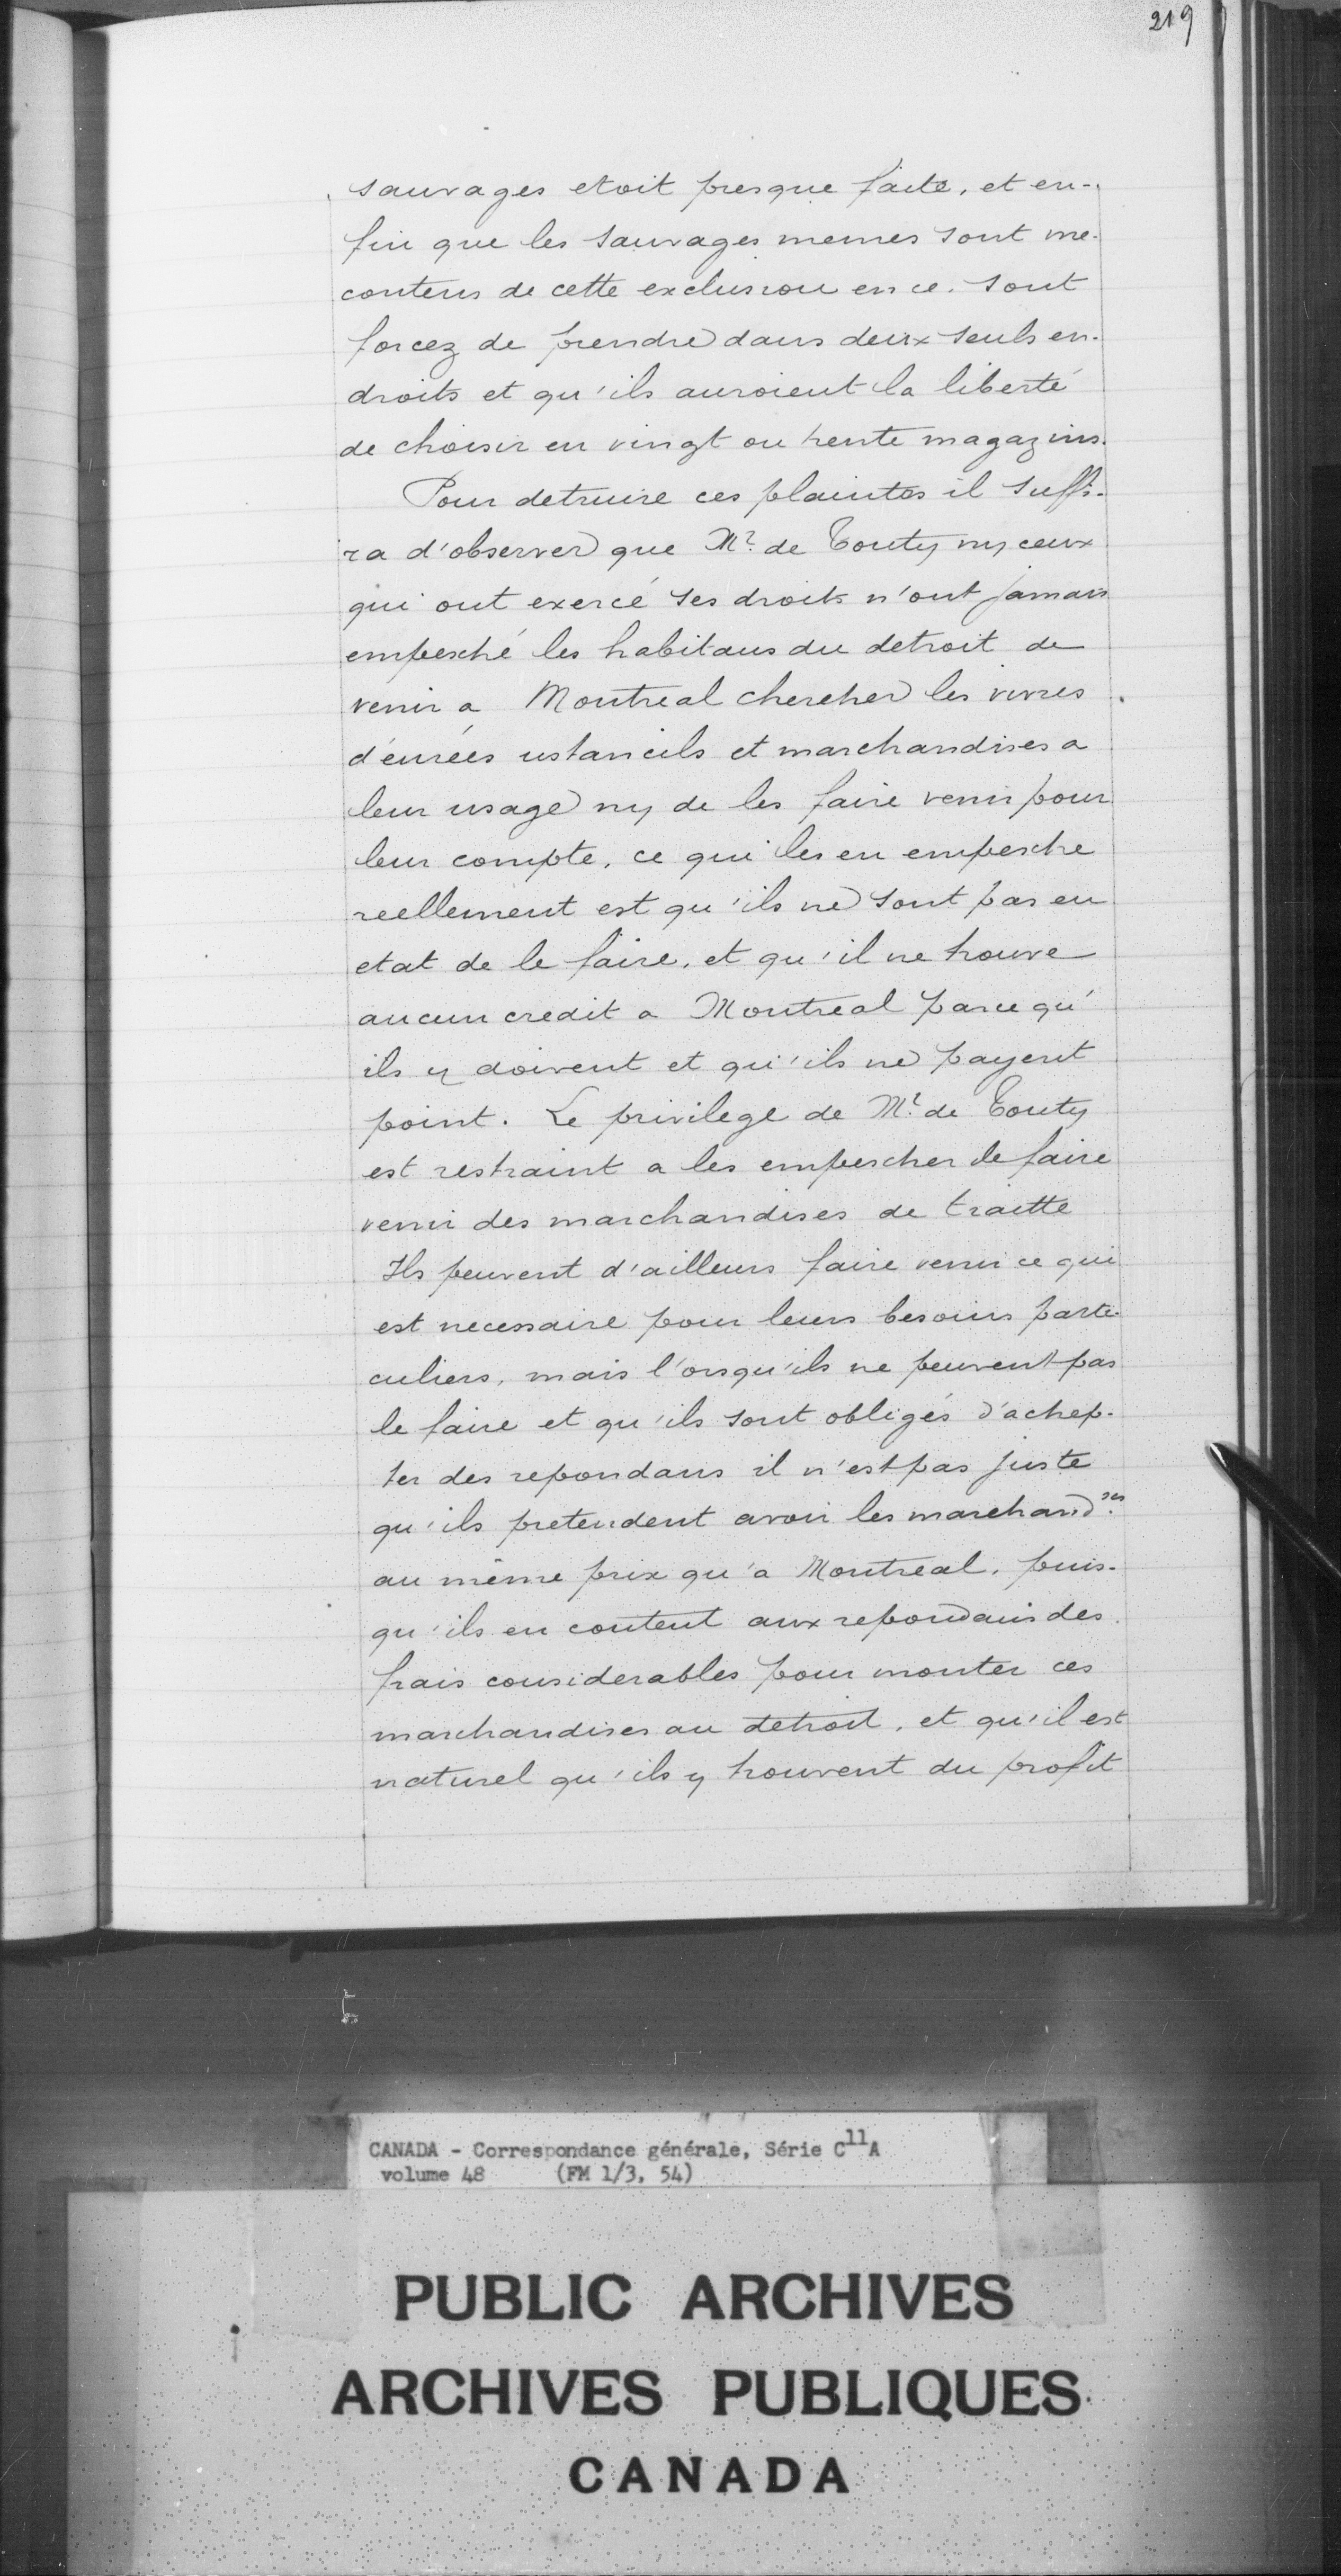 219
sauvages etoit presque faite, et en-
fin que les sauvages memes sont me-
contens de cette exclusion en ce. sont
forcez de prendre dans deux seuls en-
droits et qu'ils auroient la liberté
de choisir en vingt ou trente magazins.
Pour detruire ces plaintes il suffi-
ra d'observer que Mr. de Tonty ny ceux
qui ont exercé ses droits n'ont jamais
empesché les habitans du detroit de
venir a Montreal chercher les vivres
d'enrées ustancils et marchandises a
leur usage ny de les faire venir pour
leur compte, ce qui les en empesche
reellement est qu'ils ne sont pas en
etat de le faire, et qu'il ne trouve
aucun credit a Montreal parce qu'
ils y doivent et qu'ils ne payent
point. Le privilege de Mr. de Tonty
est restraint a les empescher de faire
venir des marchandises de traitte
Ils peuvent d'ailleurs faire venir ce qui
est necessaire pour leurs besoins parti-
culiers, mais l'orsqu'ils ne peuvent pas
le faire et qu'ils sont obligés d'achep-
ter des repondans il n'est pas juste
qu'ils pretendent avoir les marchand.ses
au même prix qu'a Montreal, puis-
qu'ils en coutent aux repondans des
frais considerables pour monter ces
marchandises au detroit, et qu'il est
naturel qu'ils y trouvent du profit
CANADA - Correspondance générale, Série C11A
volume 48 (FM 1/3, 54)
PUBLIC ARCHIVES
ARCHIVES PUBLIQUES
CANADA